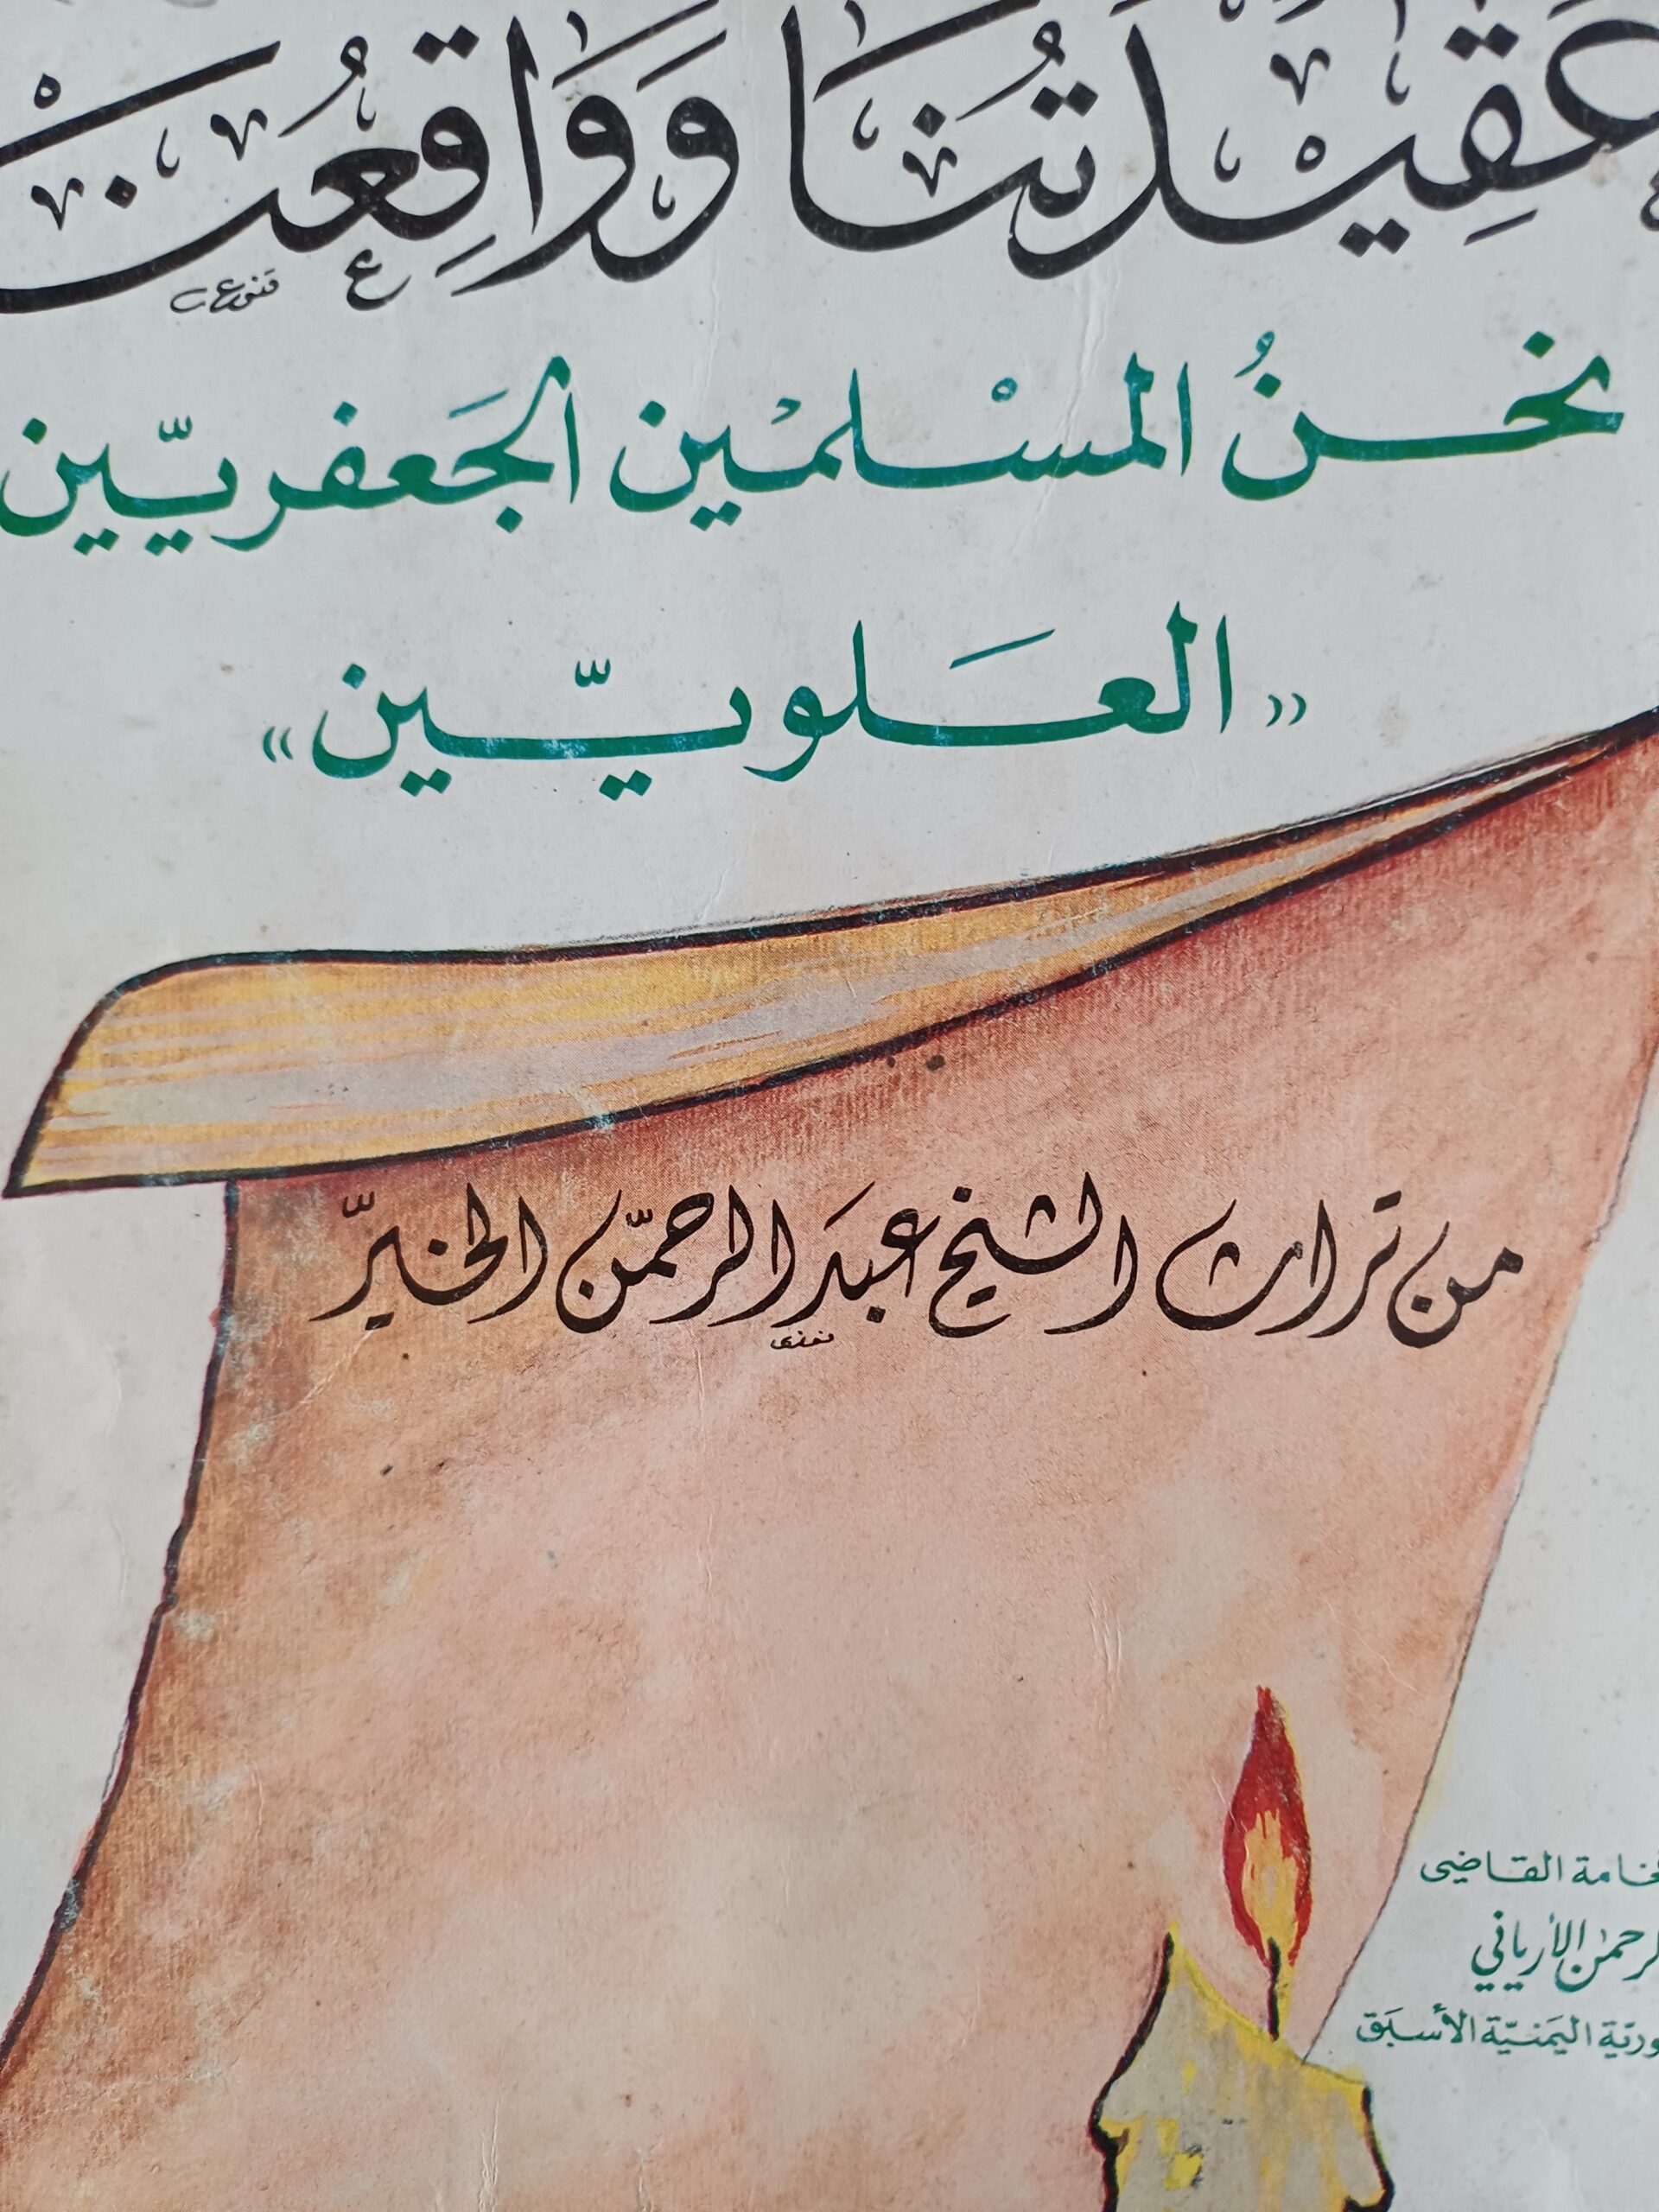 عَقِيدَتُنَا وَوَاقِعُنَا
نحنُ المسْلمْين الجَعفريّين
«العَلويّين»
من تراث الشيخ عبدَ الرحمّن الخيّر
فخامة القاضي
الرحمٰن الأرياني
اليَمنيّة الأسبَق